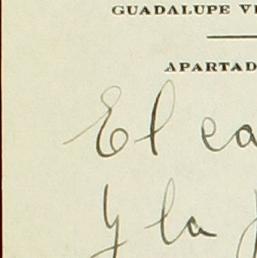 GUADALUPE
APARTAD
El ca
y la